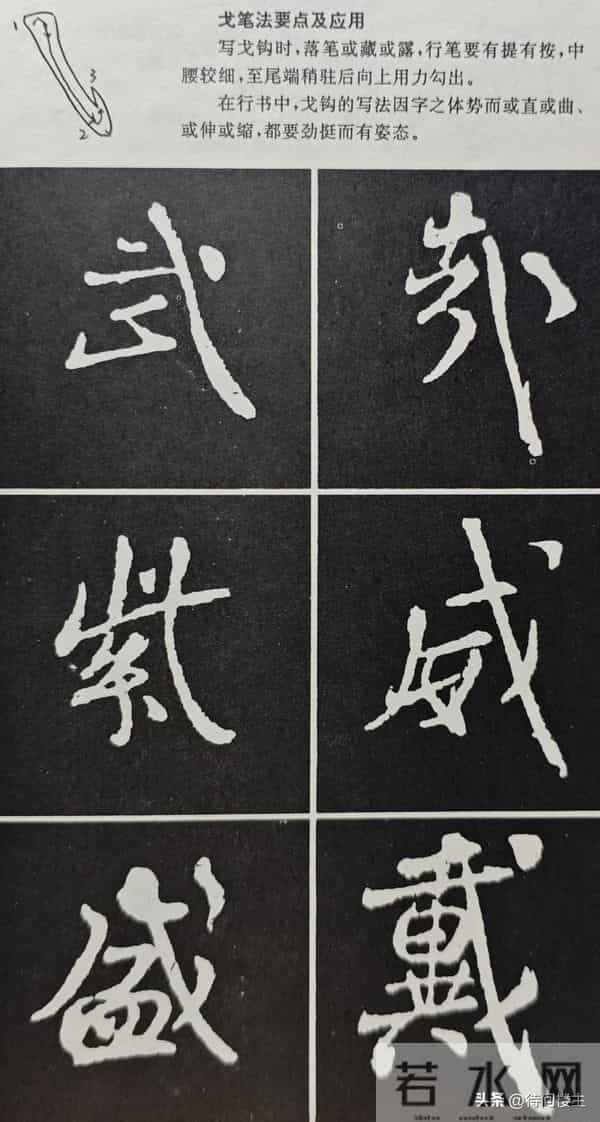 戈笔法要点及应用
写戈钩时,落笔或藏或露,行笔要有提有按,中
腰较细,至尾端稍驻后向上用力勾出。
在行书中,戈钩的写法因字之体势而或直或曲、
或伸或缩,都要劲挺而有姿态。
1
3
2
武
紫 威
盛 戴
若水网
头条 @待问楼主